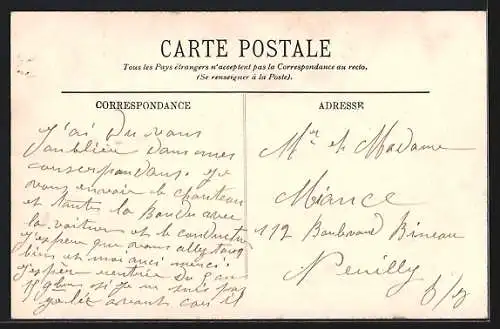 CARTE POSTALE
Tous les Pays étrangers n'acceptent pas la Correspondance au recto.
(Se renseigner à la Poste).
CORRESPONDANCE
ADRESSE
J'ai du vous
oublier dans mes
correspondans. je
vous envoie le chauteau
et toutes la Bande avec
la voiture et le conducteur
J'espere que vous allez toujours
bien et moi auci merci.
J'espère rentrée du 8 au
si je ne suis pas
avant
Mr et Madame
Miance
112 Boulevard Bineau
Neuilly
s/s